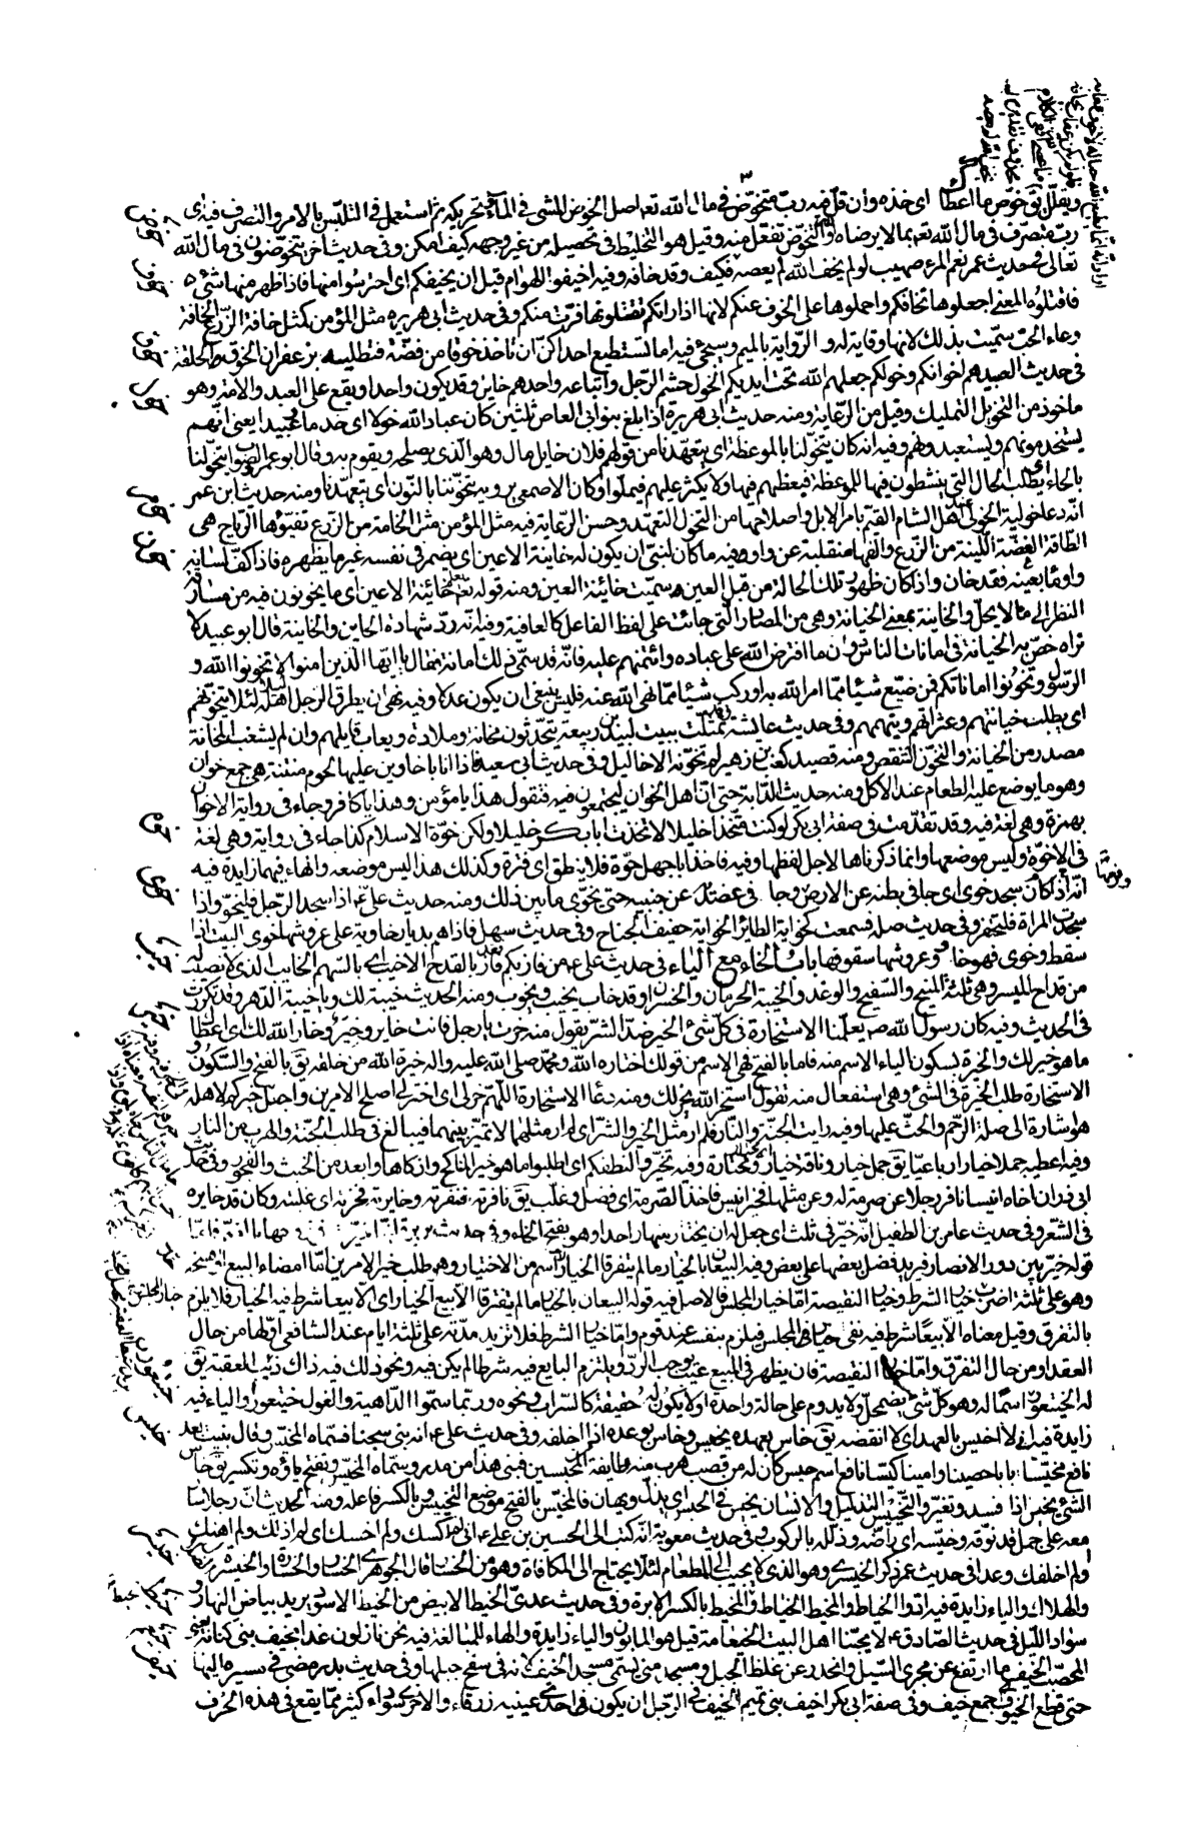 ويقلل يق خوّص ما اعطاك اى خذه وان قلّ فيه ربّ متخوّض فى مال الله تعه اصل الخوض المشى فى الماء وتحريكه ثم استعمل فى التلبّس بالامر والتصرف فيه اى
ربّ متصرّف فى مال الله تعه بما لا يرضاه والتخوّض تفعّل منه وقيل هو التخليط فى تحصيله من غير وجهه كيف امكن وفى حديث اخر يتخوّضون فى مال الله
تعالى وحديث عمر نعم المرء صهيب لو لم يخف الله لم يعصه فكيف وقد خافه وفيه اخيفوا الهوام قبل ان يخيفكم اى احترسوا منها فاذا ظهر منها شئ
فاقتلوه المعنى اجعلوها تخافكم واحملوها على الخوف عنكم لانها اذا راتكم تقتلونها فرّت منكم وفى حديث ابى هريره مثل المؤمن كمثل خافة الزرع الخافة
وعاء الحبّ سميت بذلك لانها وقاية له والرواية بالميم وسيجئ فيه اما تستطيع احداكنّ ان تاخذ خوقا من فضّة فتطليه بزعفران الخوق الحلقة
فى حديث العبيد هم اخوانكم وخولكم جعلهم الله تحت ايديكم الخول حشم الرجل واتباعه واحدهم خايل وقد يكون واحدا ويقع على العبد والامة وهو
ماخوذ من التخويل التمليك وقيل من الرعاية ومنه حديث ابى هريرة اذا بلغ بنو ابى العاص ثلثين كان عباد الله خولا اى خدما وعبيدا يعنى انّهم
يستخدمونهم ويستعبدونهم وفيه انه كان يتخوّلنا بالموعظة اى يتعهّدنا من قولهم فلان خايل مال وهو الذى يصلحه ويقوم به وقال ابو عمرو الصواب يتحوّلنا
بالحاء اى يطلب الحال التى ينشطون فيها للموعظة فيعظهم فيها ولا يكثر عليهم فيملوا وكان الاصمعى يرويه يتخوّننا بالنّون اى يتعهّدنا ومنه حديث ابن عمر
انّه دعا خوليه الخولى عند اهل الشام القيم بامر الابل واصلاحها من التخول التعهّد وحسن الرعاية فيه مثل المؤمن مثل الخامة من الزّرع تفيّؤها الرّياح هى
الطاقة الغضّة اللّينة من الزّرع والفها منقلبة عن واو وفيه ما كان لنبىّ ان يكون له خاينة الاعين اى يضمر فى نفسه غير ما يظهره فاذا كفّ لسانه
واومأ بعينه فقد خان واذا كان ظهور تلك الحالة من قبل العين سمّيت خائنة العين ومنه قوله تعه يعلم خائنة الاعين اى ما يخونون فيه من مسارقة
النظر الى ما لا يحلّ والخاينة بمعنى الخيانة وهى من المصادر التى جاءت على لفظ الفاعل كالعافية وفيه انه ردّ شهادة الخاين والخاينة قال ابو عبيد لا
نراه خصّ به الخيانة فى امانات الناس دون ما افترض الله على عباده وائتمنهم عليه فانّه قد سمّى ذلك امانة فقال يا ايّها الذين امنوا لا تخونوا الله و
الرّسول وتخونوا اماناتكم فمن ضيّع شيئا ممّا امر الله به او ركب شيئا ممّا نهى الله عنه فليس ينبغى ان يكون عدلا وفيه نهى ان يطرق الرجل اهله ليلا لئلا يتخوّنهم
اى يطلب خيانتهم وعثراتهم ويتهمهم وفى حديث عايشة وقد تمثّلت ببيت لبيد بن ربيعة يتحدّثون مخانة وملاذة ويعاب قايلهم وان لم يشغب المخانة
مصدر من الخيانة والتخوّن التنقص ومنه قصيد كعب بن زهير لم تخوّنه الاحاليل وفى حديث ابى سعيد فاذا انا باخاوين عليها لحوم منتنة هى جمع خوان
وهو ما يوضع عليه الطعام عند الاكل ومنه حديث الدّابة حتى انّ اهل الخوان ليجتمعون فيه فتقول هذا يا مؤمن وهذا يا كافر وجاء فى رواية الاخوان
بهمزة وهى لغة فيه وقد تقدّمت فى صفة ابى بكر لو كنت متّخذا خليلا لاتخذت ابا بكر خليلا ولكن خوّة الاسلام كذا جاء فى رواية وهى لغة
فى الاخوّة وليس موضعها وانما ذكرناها لاجل لفظها وفيه فاخذ ابا جهل خوّة فلا ينطق اى فترة وكذلك هذا ليس موضعه والهاء فيهما زايدة فيه
انّه اذا كان سجد خوى اى جافى بطنه عن الارض وجافى عضديه عن جنبيه حتى يخوّى ما بين ذلك ومنه حديث على ع اذا سجد الرّجل فليخوّ واذا
سجدت المراة فلتحتفز وفى حديث صله فسمعت كخواية الطائر الخواية حفيف الجناح وفى حديث سهل فاذا هم بديار خاوية على عروشها خوى البيت اذا
سقط وخوى فهو خاو وعروشها سقوفها باب الخاء مع الياء فى حديث على ع من فاز بكم فاز بالقدح الاخيب اى بالسّهم الخايب الذى لا نصيب له
من قداح الميسر وهى ثلثة المنيح والسفيح والوغد والخيبة الحرمان والخسران وقد خاب يخيب ويخوب ومنه الحديث خيبة لك ويا خيبة الدّهر وقد تكرّرت
فى الحديث وفيه كان رسول الله ص يعلّمنا الاستخارة فى كلّ شئ الخير ضدّ الشرّ يقول منه خرت يا رجل فانت خاير وخيّر وخار الله لك اى اعطاك
ما هو خير لك والخيرة بسكون الياء الاسم منه فاما بالفتح فهى الاسم من قولك اختاره الله ومحمّد صلى الله عليه واله خيرة الله من خلقه يق بالفتح والسّكون
الاستخارة طلب الخيرة فى الشئ وهى استفعال منه تقول استخر الله يخر لك ومنه دعاء الاستخارة اللّهمّ خر لى اى اختر لى اصلح الامرين واجعل خيركم لاهله
هو شارة الى صلة الرّحم والحثّ عليها وفيه رايت الجنّة والنّار فلم ار مثل الخير والشّرّ اى لم ار مثلهما لا تميّز بينهما فيبالغ فى طلب الجنّة والهرب من النار
وفيه اعطيه جملا خيارا رباعيّا يق جمل خيار وناقة خيار اى مختار ومختارة وفيه تخيّروا لنطفكم اى اطلبوا ما هو خير المناكح وازكاها وابعد من الخبث والفجور وفى حديث
ابى ذر ان اخاه انيسا نافر رجلا عن صرمة له وعن مثلها فخيّر انيس فاخذ الصّرمة اى فضّل وغلّب يق نافرته فنفرته وخايرته فخرته اى غلبته وكان قد خايره
فى الشّعر وفى حديث عامر بن الطفيل انّه خيّر فى ثلث اى جعل له ان يختار منها واحدا وهو بفتح الخاء وفى حديث بريرة انّها خيّرت فى زوجها بالضّمّ فامّا
قوله خيّر بين دور الانصار فيريد فضّل بعضها على بعض وفيه البيعان بالخيار ما لم يتفرقا الخيار الاسم من الاختيار وهو طلب خير الامرين امّا امضاء البيع او فسخه
وهو على ثلثة اضرب خيار الشرط وخيار النقيصة امّا خيار المجلس فالاصل فيه قوله البيعان بالخيار ما لم يتفرقا الا بيع الخيار اى الا بيعا شرط فيه الخيار فلا يلزم
بالتفرق وقيل معناه الا بيعا شرط فيه نفى خيار المجلس فيلزم بنفسه عند قوم وامّا خيار الشرط فلا تزيد مدّته على ثلثة ايام عند الشافعى اوّلها من حال
العقد او من حال التفرّق وامّا خيار النقيصة فان يظهر فى المبيع عيب يوجب الردّ او يلتزم البايع فيه شرطا لم يكن فيه ونحو ذلك فيه ذاك ذئب العقبة يق
له الخيتعور اسمًا له وهو كل شئ يضمحلّ ولا يدوم على حالة واحدة او لا يكون له حقيقة كالسّراب ونحوه وربّما سمّوا الدّاهية والغول خيتعورا والياء فيه
زايدة فيه انى لا اخيس بالعهد اى لا انقضه يق خاس بعهده يخيس وخاس بوعده اذا اخلفه وفى حديث على ع انه بنى سجنا فسمّاه المخيّس وقال بنيت بعد
نافع مخيّسا بابا حصينا وامينا كيّسا نافع اسم حبس كان له من قصب هرب منه طايفة المحبسين فبنى هذا من مدر وسمّاه المخيّس وتفتح ياؤه وتكسر يق خاس
الشئ يخيس اذا فسد وتغيّر والتّخييس التذليل والانسان يخيس فى الحبس اى يذلّ ويهان فالمخيّس بالفتح موضع التخييس وبالكسر فاعله ومنه الحديث انّ رجلا سار
معه على جمل قد نوّقه وخيّسه اى راضه وذلّله بالركوب وفى حديث معوية انه كتب الى الحسين بن على ع انى لم اكسك ولم اخسك اى لم اذلك ولم اهنك
ولم اخلفك وعدا فى حديث عمر ذكر الخيسرى وهو الذى لا يجيب الى الطعام لئلا يحتاج الى المكافاة وهو من الخسار قال الجوهرى الخسار والخسارة والخيسرى
والهلاك والياء زايدة فيه ادوا الخياط والمخيط الخياط والمخيط بالكسر الابرة وفى حديث عدىّ الخيط الابيض من الخيط الاسود يريد بياض النهار و
سواد اللّيل فى حديث الصّادق ع لا يحبّنا اهل البيت الخيعامة قيل هو المابون والياء زايدة والهاء للمبالغة فيه نحن نازلون غدا بخيف بنى كنانة يعنى
المحصّب الخيف ما ارتفع عن مجرى السّيل وانحدر عن غلظ الجبل ومسجد منى يسمّى مسجد الخيف لانه فى سفح جبلها وفى حديث بدر مضى فى مسيره اليها
حتى قطع الخيوف جمع خيف وفى صفة ابى بكر اخيف بنى تميم الخيف فى الرّجل ان يكون احدى عينيه زرقاء والاخرى سوداء كثير ممّا يقع فى هذه الحرف
خوض
خوف
خوق
خول
خوم
خون
خوه
خوى
خيب
خير
خيتعور
خيس
خيسر
خيط
خيعم
خيف